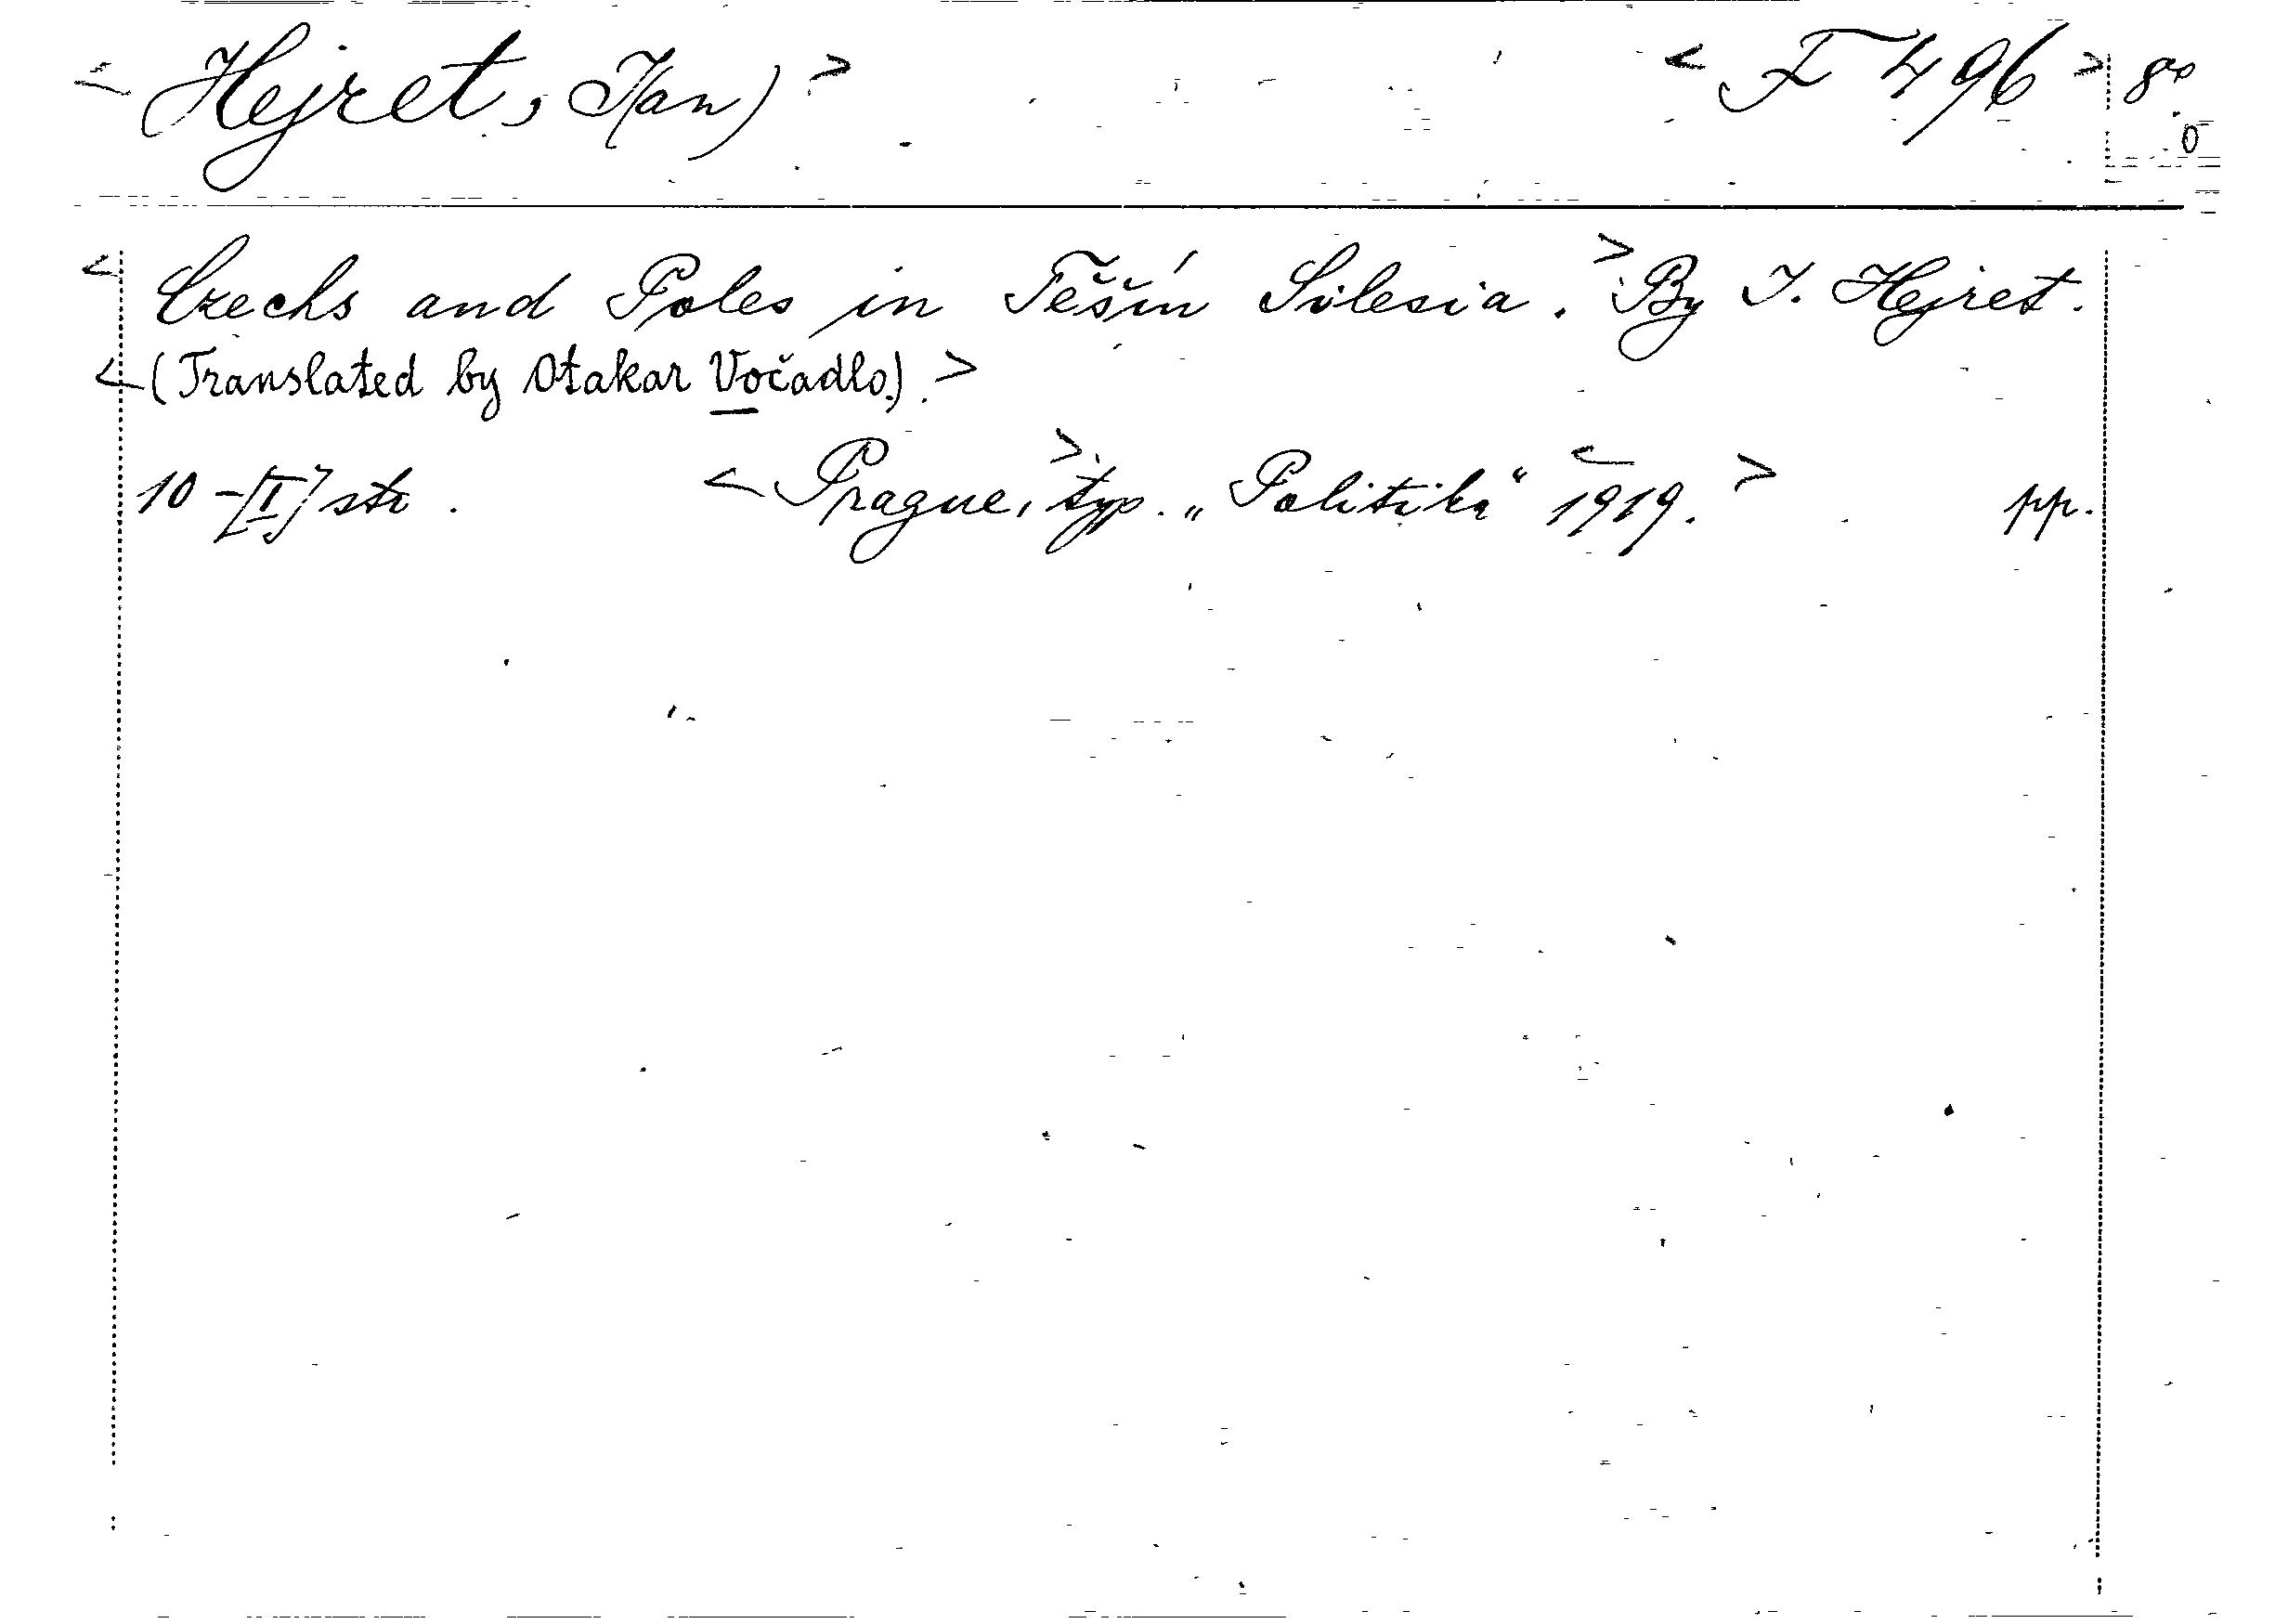 < Hejret, J(an) > < F 496 > 8°
0
< Czechs and Poles in Těšín Silesia. > By J. Hejret.
< (Translated by Otakar Vočadlo.) >
10-[I] str. < Prague, > typ. „Politika“ < 1919. > pp.